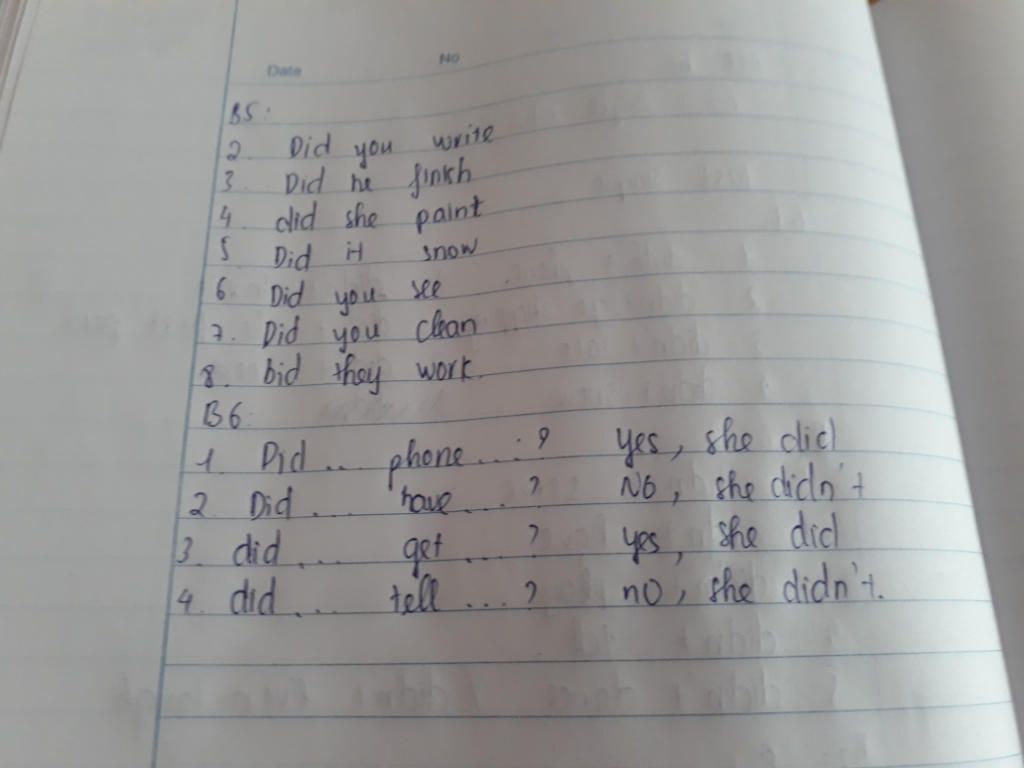 Date No
B5:
2. Did you write
3. Did he finish
4. did she paint
5 Did it snow
6. Did you see
7. Did you clean
8. bid they work.
B6:
1. Did... phone...? yes, she did
2. Did... have...? NO, she didn't
3. did... get...? yes, she did
4. did... tell...? no, she didn't.